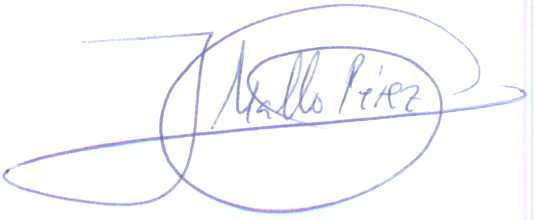 J Mallo Pérez